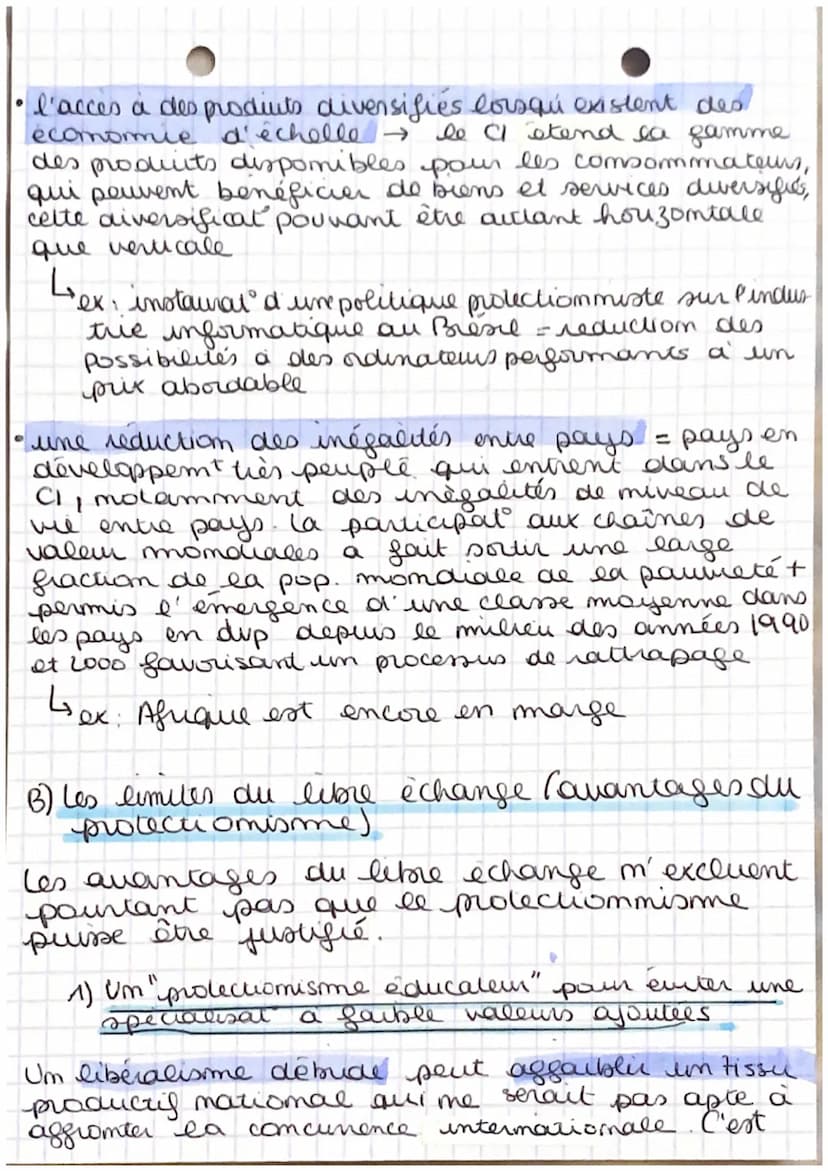 • l'accès à des produits diversifiés lorsqu'existent des
économie d'échelle → le CI étend la gamme
des produits disponibles pour les consommateurs,
qui peuvent bénéficier de biens et services diversifiés,
cette diversificat° pouvant être autant houzontale
que verticale
↳ ex: instaurat° d'une politique protectionniste sur l'indus
trie informatique au Brésil = réduction des
possibilités à des ordinateurs performants à un
prix abordable
• une réduction des inégalités entre pays = pays en
développemt très peuplé qui entrent dans le
CI, notamment des inégalités de niveau de
vie entre pays. La participat° aux chaînes de
valeur mondiales a fait sortir une large
fraction de la pop. mondiale de la pauvreté +
permis l'émergence d'une classe moyenne dans
les pays en dvp depuis le milieu des années 1990
et 2000 favorisant un processus de rattrapage
↳ ex: Afrique est encore en marge
B) Les limites du libre échange (avantages du
protectionisme)
Les avantages du libre échange n'excluent
pourtant pas que le protectionnisme
puisse être justifié.
1) Un "protectionisme éducateur" pour éviter une
spécialisat° à faible valeurs ajoutées
Un libéralisme débridé peut affaiblir un tissu
productif national qui ne serait pas apte à
affronter la concurence internationale. C'est